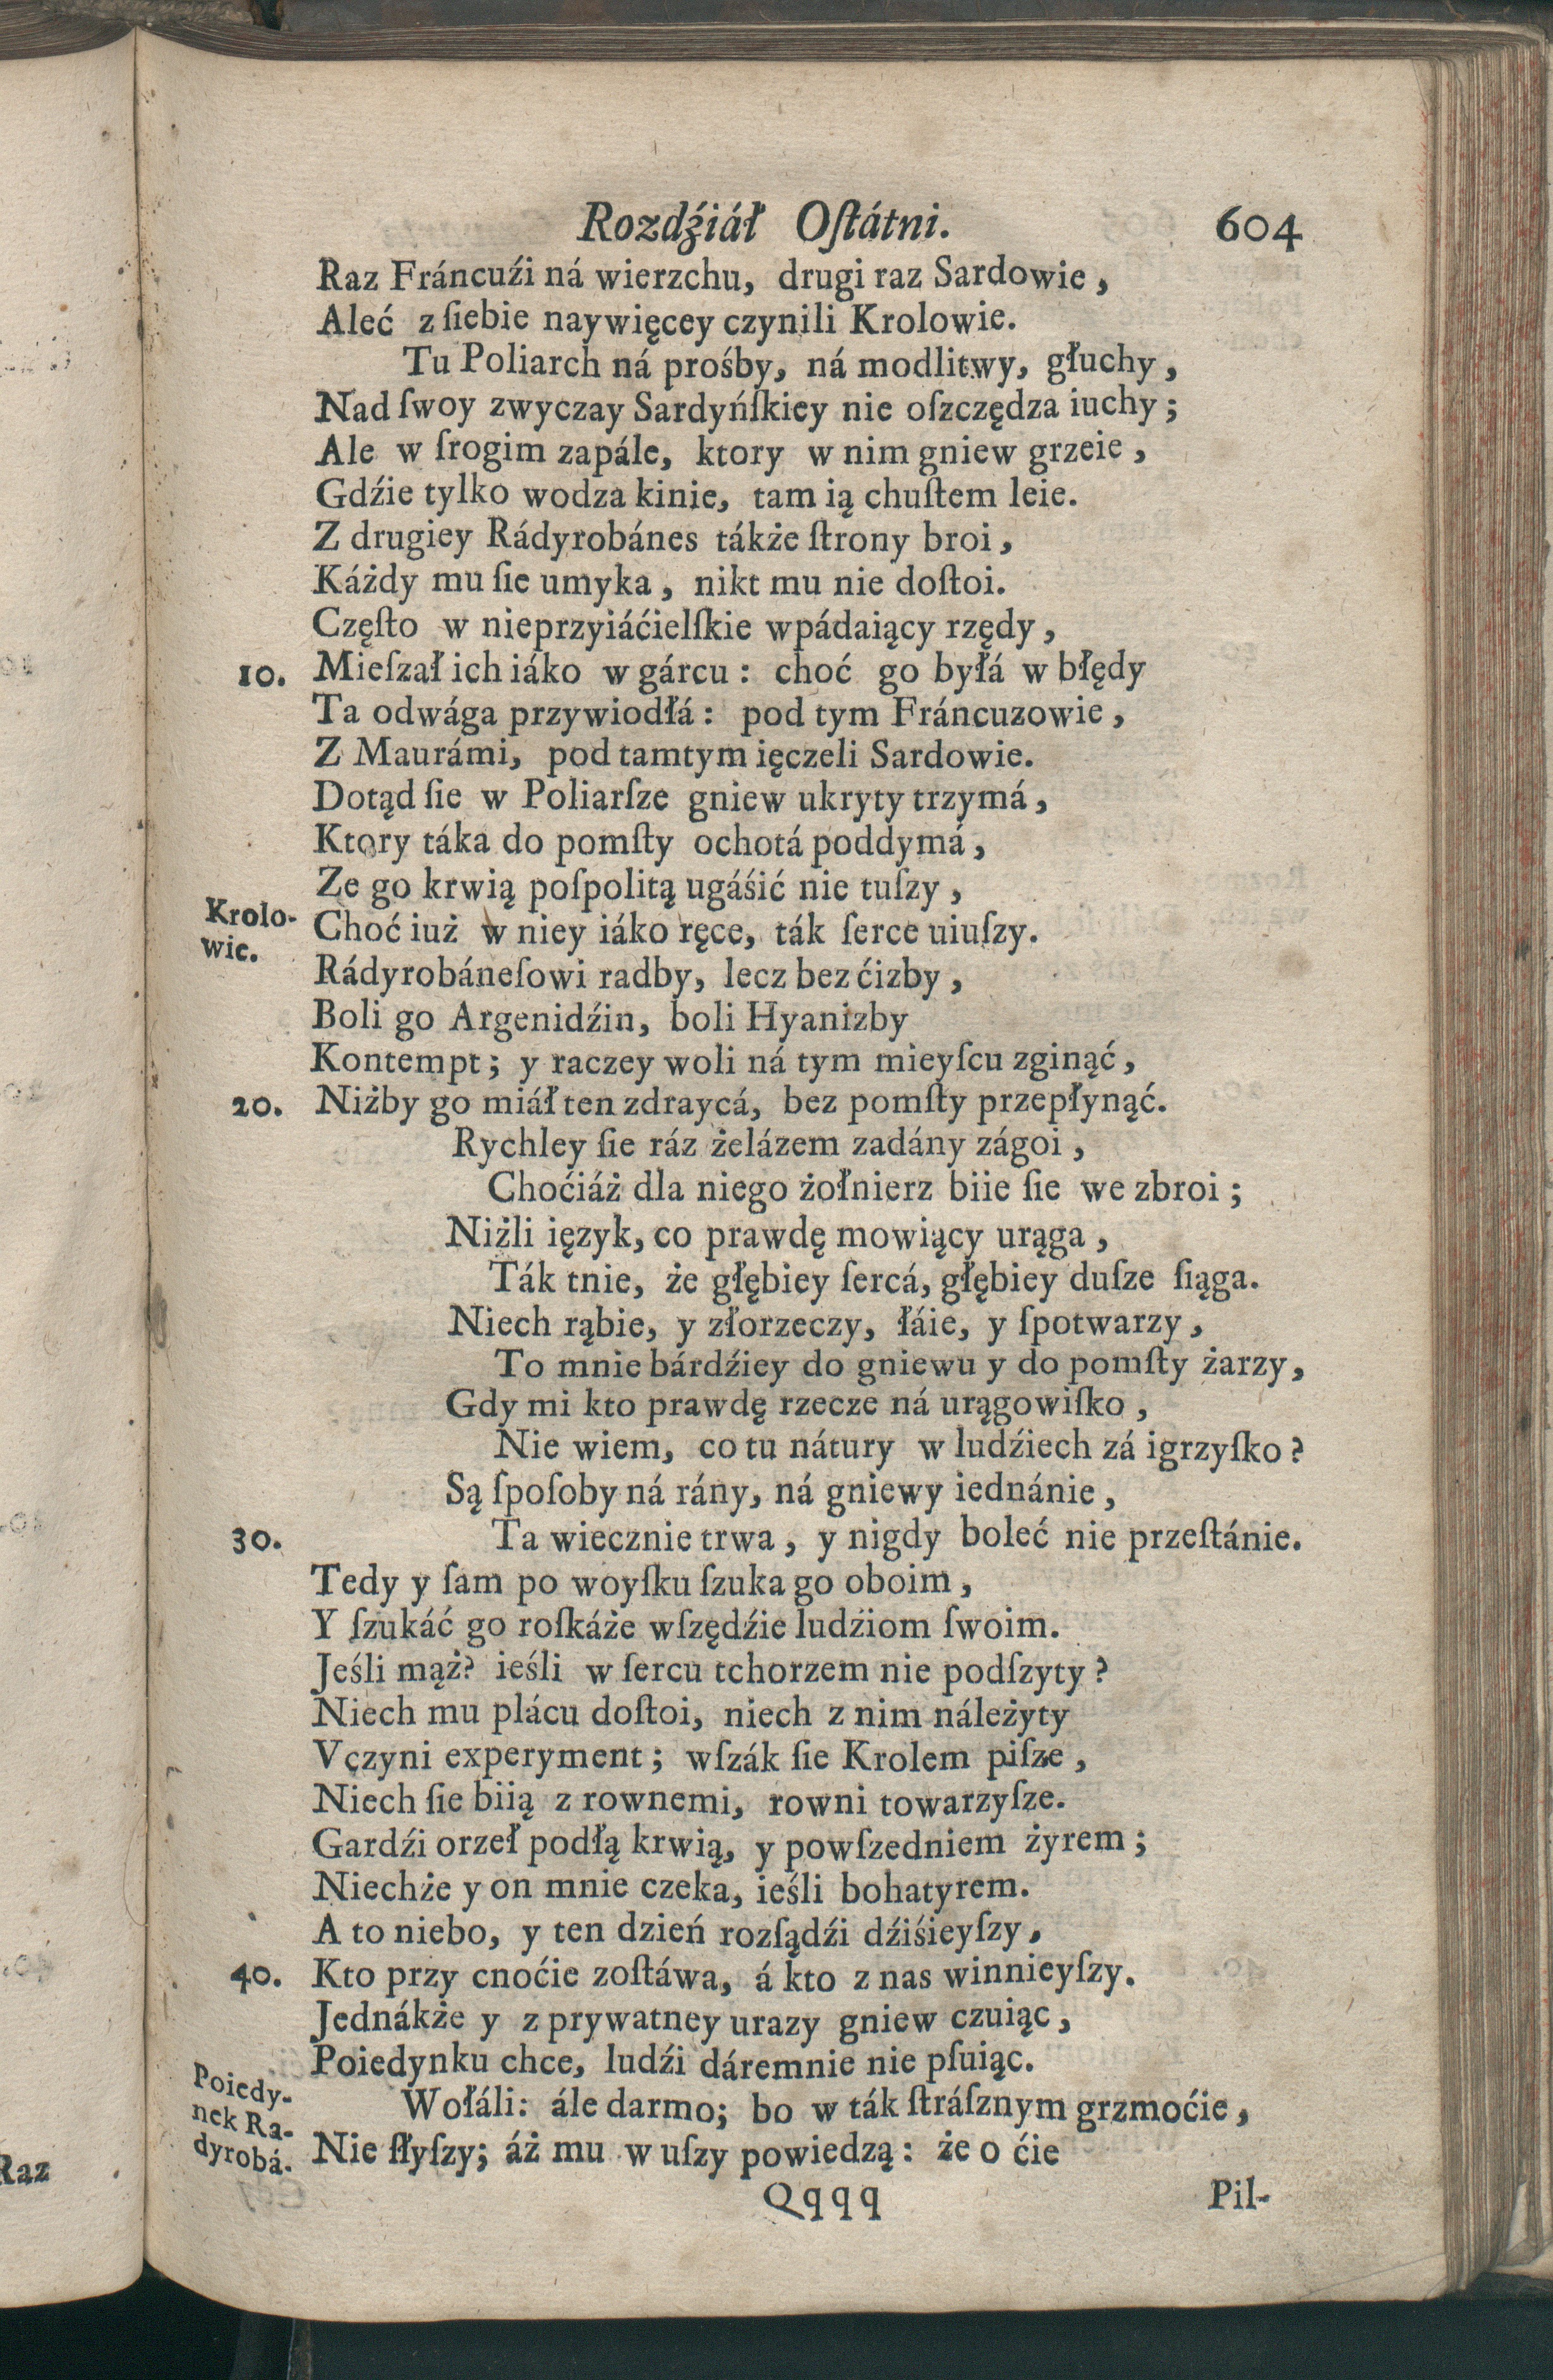 Rozdźiáł Oſtátni. 604
Raz Fráncuźi ná wierzchu, drugi raz Sardowie,
Aleć z ſiebie naywięcey czynili Krolowie.
Tu Poliarch ná prośby, ná modlitwy, głuchy,
Nad ſwoy zwyczay Sardyńſkiey nie oſzczędza iuchy;
Ale w ſrogim zapále, ktory w nim gniew grzeie,
Gdźie tylko wodza kinie, tam ią chuſtem leie.
Z drugiey Rádyrobánes tákże ſtrony broi,
Káżdy mu ſie umyka, nikt mu nie doſtoi.
Częſto w nieprzyiáćielſkie wpádaiący rzędy,
10. Mieſzał ich iáko w gárcu: choć go byłá w błędy
Ta odwága przywiodłá: pod tym Fráncuzowie,
Z Maurámi, pod tamtym ięczeli Sardowie.
Dotąd ſie w Poliarſze gniew ukryty trzymá,
Ktory táka do pomſty ochotá poddymá,
Ze go krwią poſpolitą ugáśić nie tuſzy,
Krolo-
wic.
Choć iuż w niey iáko ręce, ták ſerce uiuſzy.
Rádyrobáneſowi radby, lecz bez ćizby,
Boli go Argenidźin, boli Hyanizby
Kontempt; y raczey woli ná tym mieyſcu zginąć,
20. Niżby go miáł ten zdraycá, bez pomſty przepłynąć.
Rychley ſie ráz żelázem zadány zágoi,
Choćiáż dla niego żołnierz biie ſie we zbroi;
Niżli ięzyk, co prawdę mowiący urąga,
Ták tnie, że głębiey ſercá, głębiey duſze ſiąga.
Niech rąbie, y złorzeczy, łáie, y ſpotwarzy,
To mnie bárdźiey do gniewu y do pomſty żarzy,
Gdy mi kto prawdę rzecze ná urągowiſko,
Nie wiem, co tu nátury w ludźiech zá igrzyſko?
Są ſpoſoby ná rány, ná gniewy iednánie,
30. Ta wiecznie trwa, y nigdy boleć nie przeſtánie.
Tedy y ſam po woyſku ſzuka go oboim,
Y ſzukáć go roſkáże wſzędźie ludźiom ſwoim.
Jeśli mąż? ieśli w ſercu tchorzem nie podſzyty?
Niech mu plácu doſtoi, niech z nim náleżyty
Vczyni experyment; wſzák ſie Krolem piſze,
Niech ſie biią z rownemi, rowni towarzyſze.
Gardźi orzeł podłą krwią, y powſzedniem żyrem;
Niechże y on mnie czeka, ieśli bohatyrem.
A to niebo, y ten dzień rozſądźi dźiśieyſzy,
40. Kto przy cnoćie zoſtáwa, á kto z nas winnieyſzy.
Jednákże y z prywatney urazy gniew czuiąc,
Poiedynku chce, ludźi dáremnie nie pſuiąc.
Poiedy-
nek Ra-
dyrobá.
Wołáli: ále darmo; bo w ták ſtráſznym grzmoćie,
Nie ſłyſzy; áż mu w uſzy powiedzą: że o ćie
Qqqq Pil-
Raz